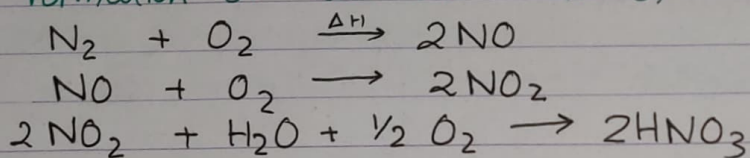 N₂ + O₂ ΔH → 2NO
NO + O₂ → 2NO₂
2NO₂ + H₂O + ½ O₂ → 2HNO₃